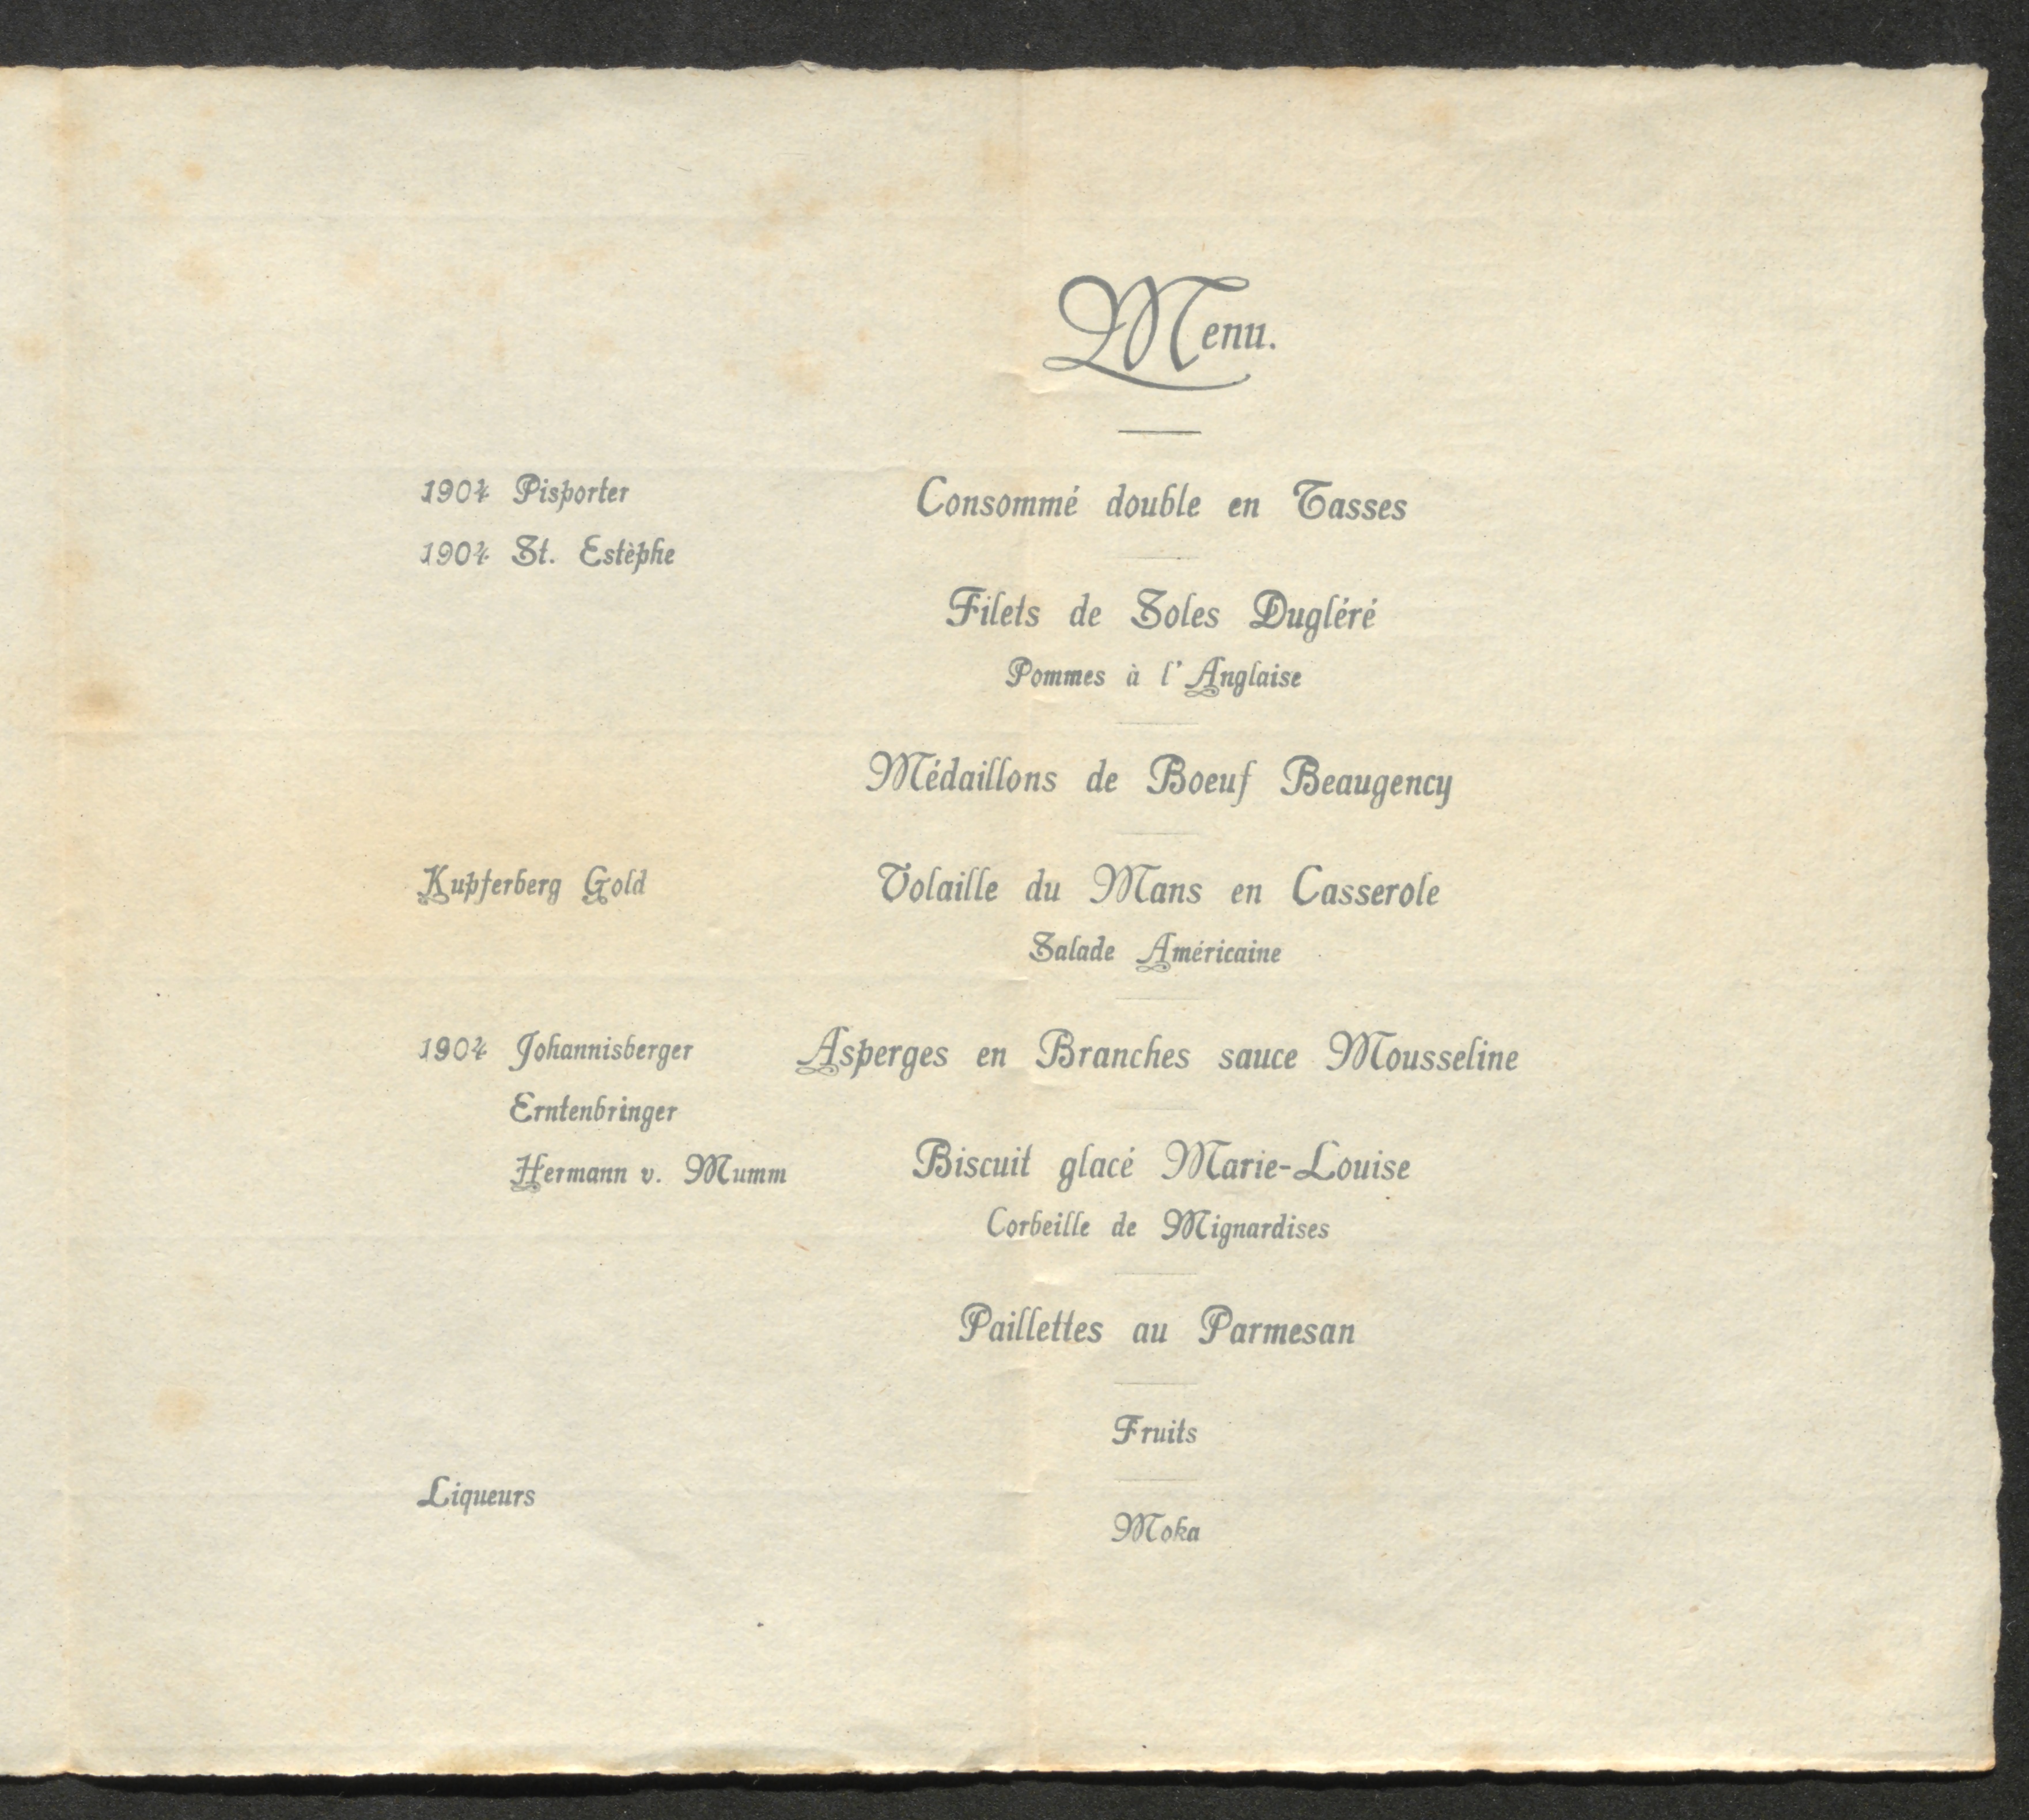 Menu.
1904 Pisporter
Consommé double en Tasses
1904 St. Estèphe
Filets de Soles Dugléré
Pommes à l'Anglaise
Médaillons de Boeuf Beaugency
Kupferberg Gold
Volaille du Mans en Casserole
Salade Américaine
1904 Johannisberger
Asperges en Branches sauce Mousseline
Erntenbringer
Hermann v. Mumm
Biscuit glacé Marie-Louise
Corbeille de Mignardises
Paillettes au Parmesan
Fruits
Liqueurs
Moka